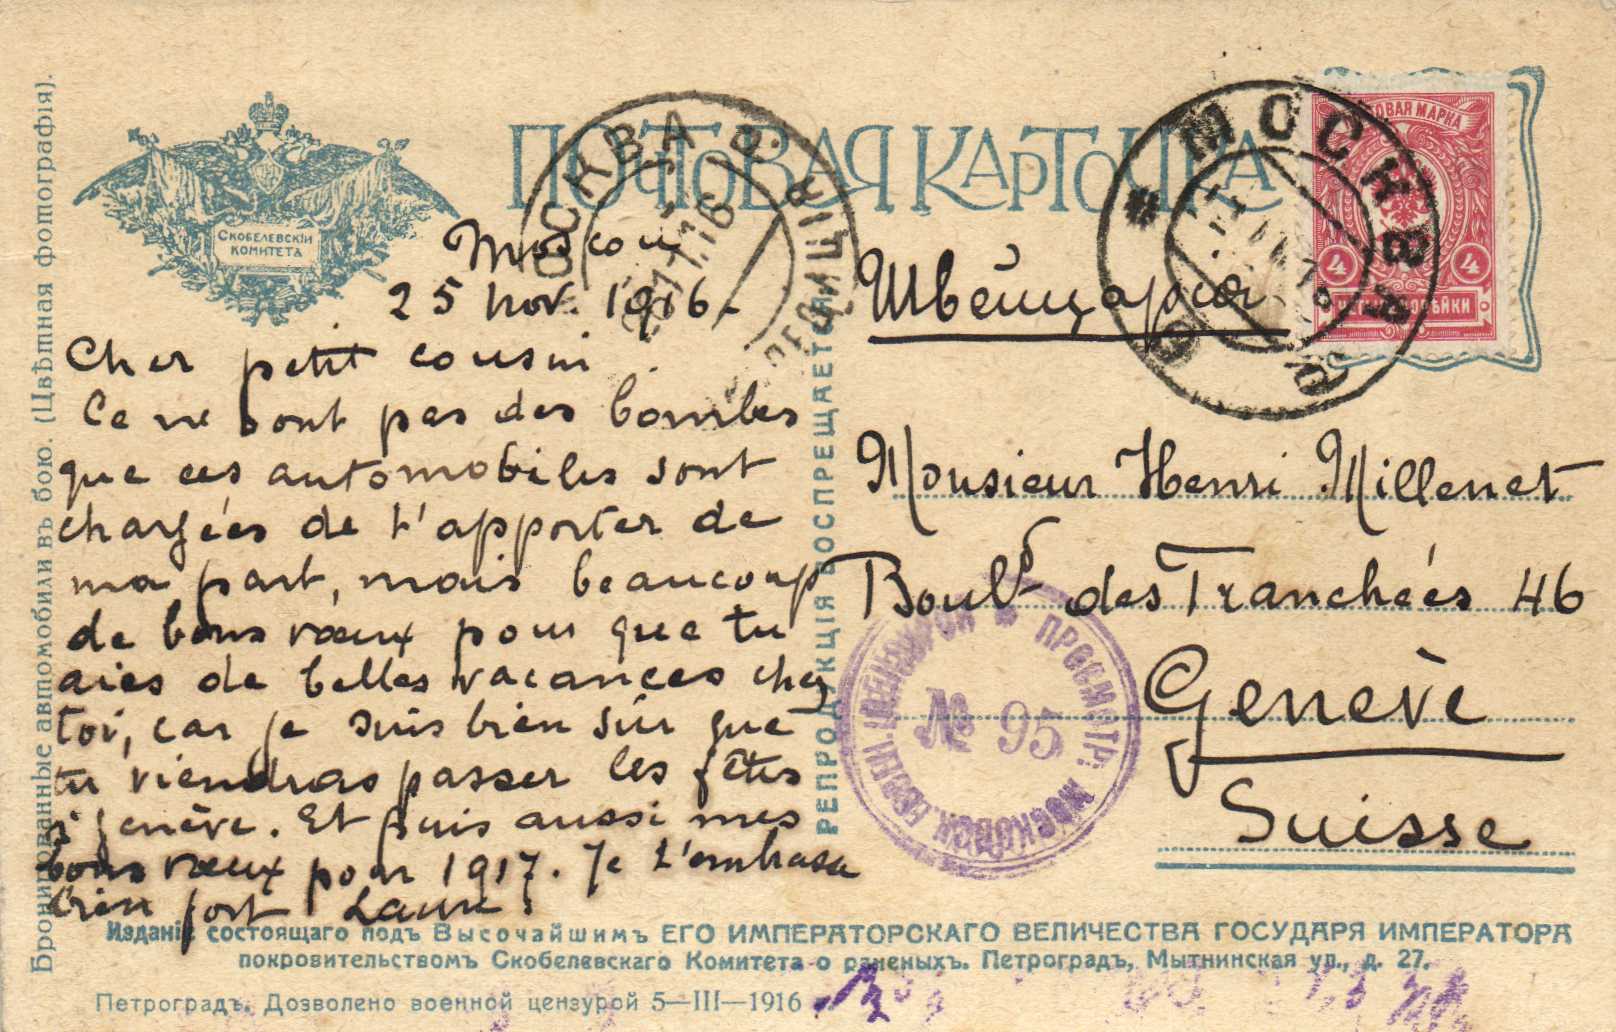 ПОЧТОВАЯ КАРТОЧКА
СКОБЕЛЕВСКІЙ
КОМИТЕТЪ
МОСКВА
ЭКСПЕДИЦІЯ
МОСКВА
ПОЧТОВАЯ МАРКА
4 4
ЧЕТЫРЕ КОПѢЙКИ
Moscou
25 nov. 1916.
Cher petit cousin
Ce ne sont pas des bombes
que ces automobiles sont
chargées de t'apporter de
ma part, mais beaucoup
de bons vœux pour que tu
aies de belles vacances chez
toi, car je suis bien sûr que
tu viendras passer les fêtes
à Genève. Et puis aussi mes
bons vœux pour 1917. Je t'embrasse
bien fort Laure.
Швейцарія
Monsieur Henri Millenet
Boulᵈ des Tranchées 46
Genève
Suisse
№ 95
Бронированные автомобили въ бою. (Цвѣтная фотографія).
РЕПРОДУКЦІЯ ВОСПРЕЩАЕТСЯ
Изданіе состоящаго подъ Высочайшимъ ЕГО ИМПЕРАТОРСКАГО ВЕЛИЧЕСТВА ГОСУДАРЯ ИМПЕРАТОРА
покровительствомъ Скобелевскаго Комитета о раненыхъ. Петроградъ, Мытнинская ул., д. 27.
Петроградъ. Дозволено военной цензурой 5—III—1916